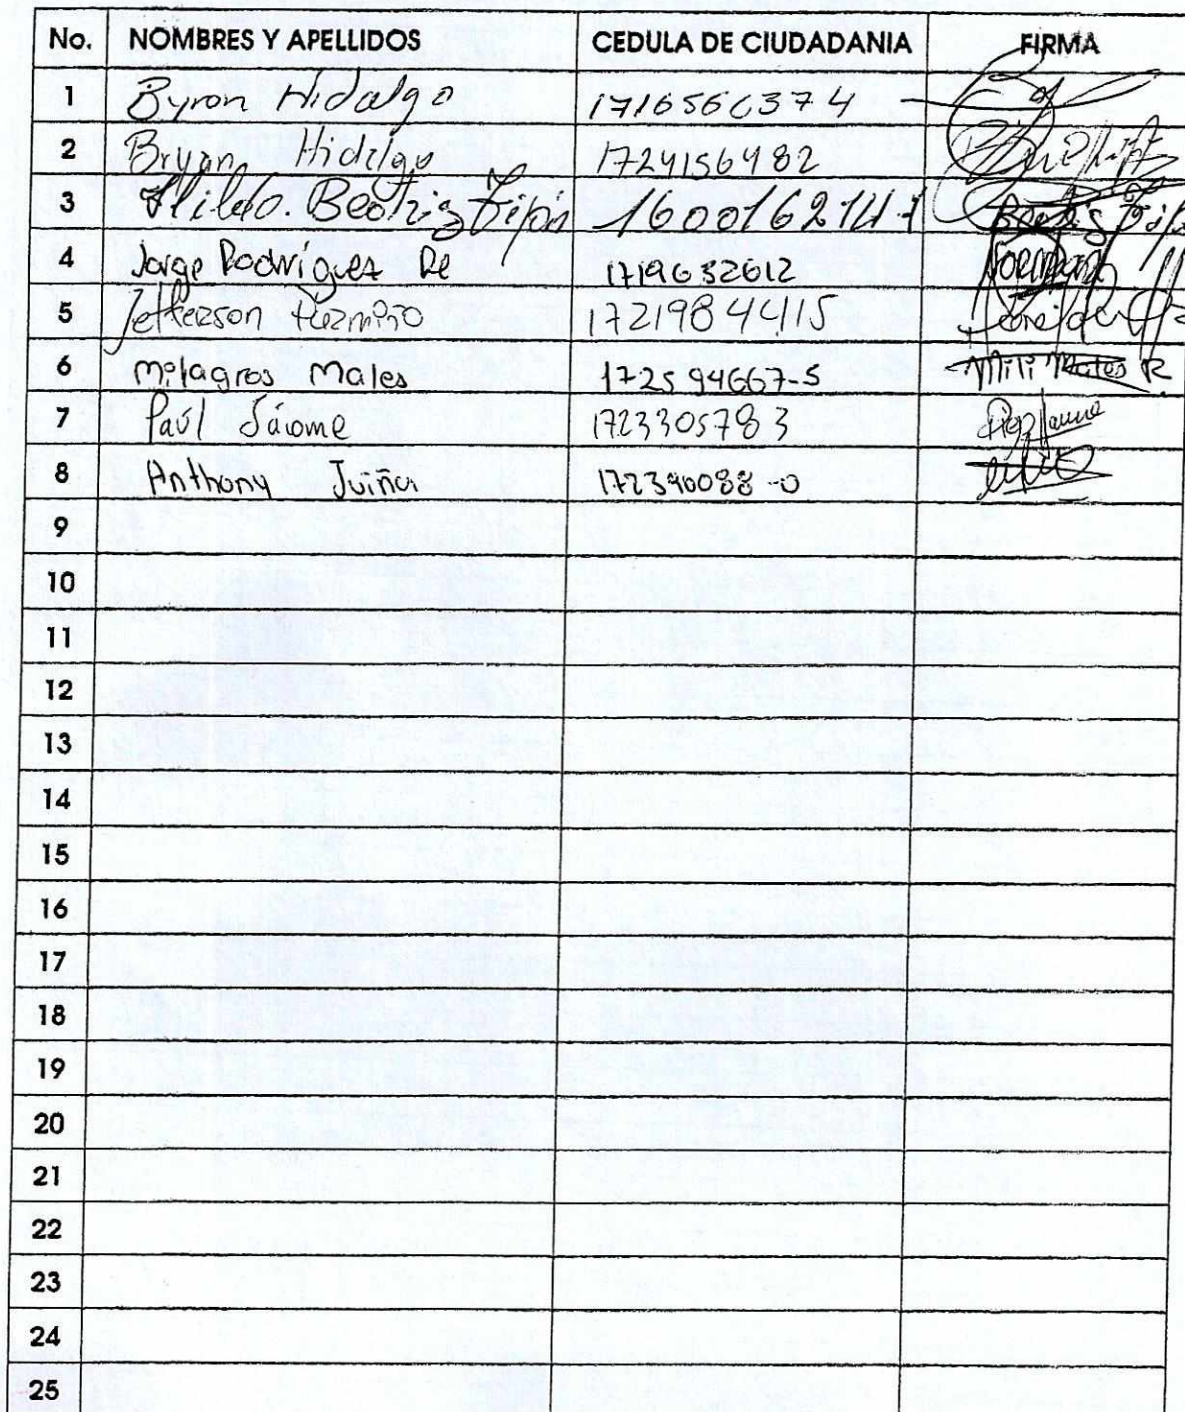 No. NOMBRES Y APELLIDOS CEDULA DE CIUDADANIA FIRMA
1 Byron Hidalgo 1716560374
2 Bryan Hidalgo 1724156482
3 Hilda. Beatriz Tipán 160016214-1
4 Jorge Rodríguez De 1719632612
5 Jefferson 1721984415
6 Milagros Males 172594667-5 Mili Males R.
7 Paúl Jácome 1723305783
8 Anthony 172390088-0
9
10
11
12
13
14
15
16
17
18
19
20
21
22
23
24
25